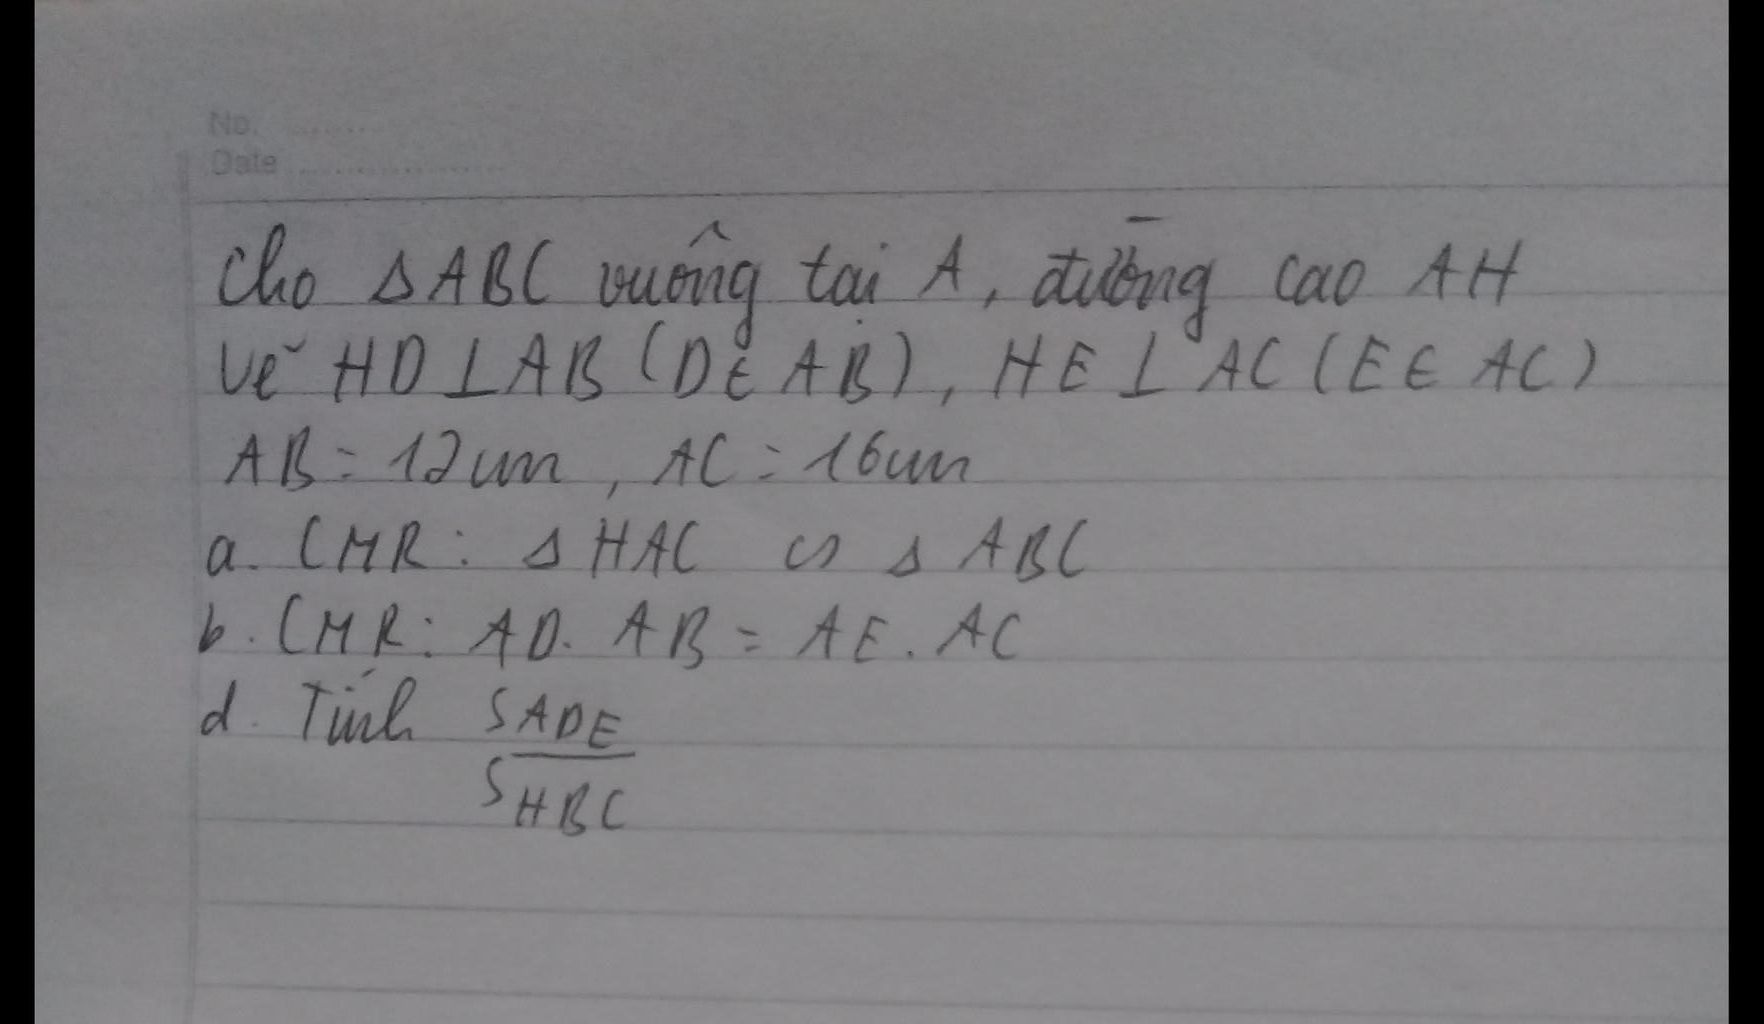 No. ........
Date ..................
Cho Δ ABC vuông tại A, đường cao AH
Vẽ HD ⊥ AB (D ∈ AB), HE ⊥ AC (E ∈ AC)
AB = 12cm, AC = 16cm
a. CMR: Δ HAC ∽ Δ ABC
b. CMR: AD. AB = AE. AC
d. Tính S_ADE
S_HBC